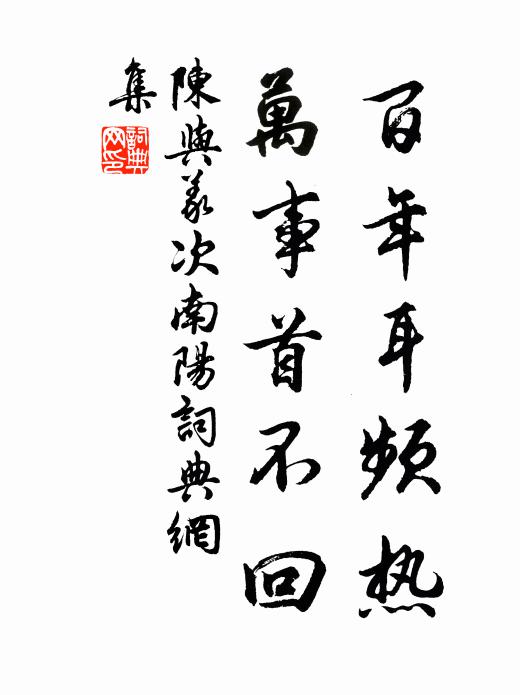 百年耳频热
萬事首不回
陳與義次南陽詞典網
集
詞典網印